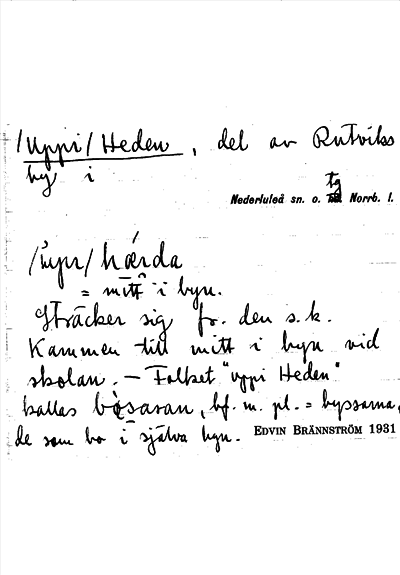 /Uppi/ Heden, del av Rutviks
by i
tg
Nederluleå sn. o. Norrb. l.
/upr/ hǽrda
= mitt i byn.
Sträcker sig fr. den s.k.
Kammen till mitt i byn vid
skolan. — Folket "uppi Heden"
kallas bòsaran, bf. m. pl. = byssarna,
de som bo i själva byn. EDVIN BRÄNNSTRÖM 1931